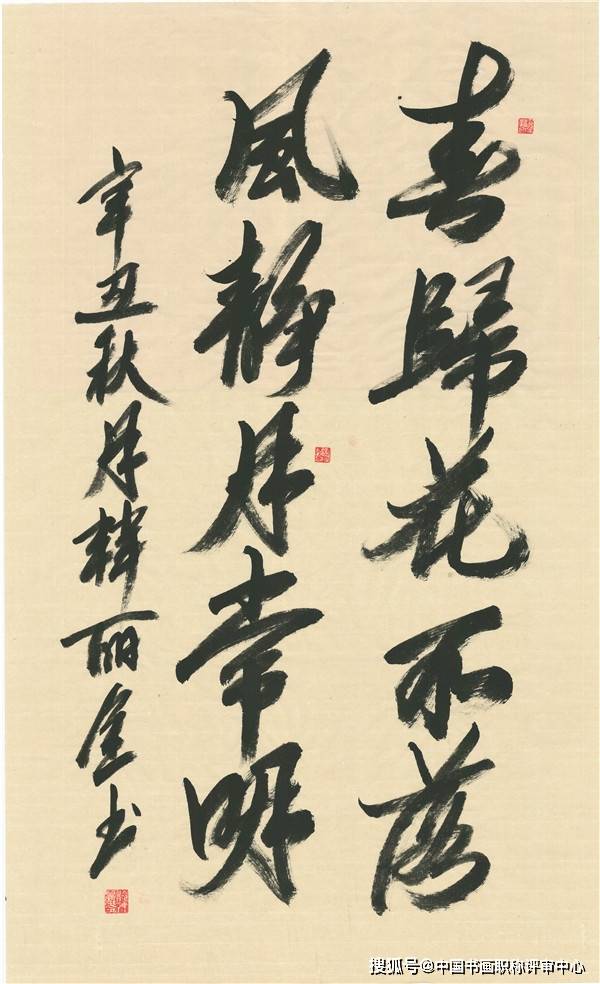 春歸花不落
風静月常明
辛丑秋月韓丽金书
搜狐号@中国书画职称评审中心